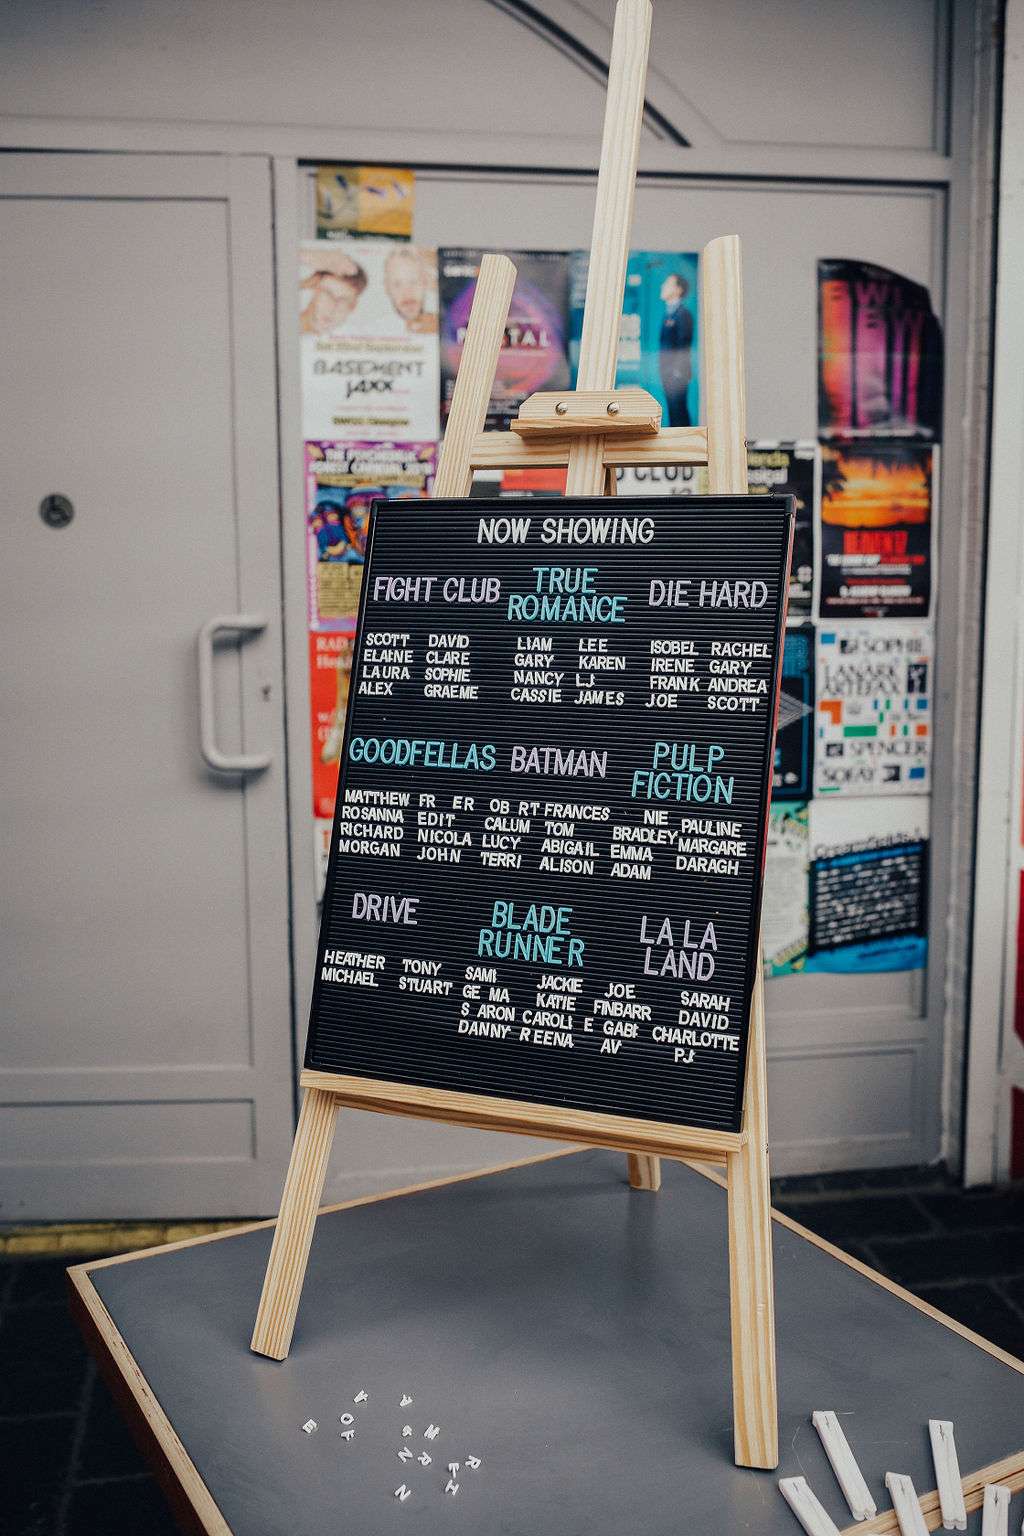 NOW SHOWING
FIGHT CLUB
SCOTT DAVID
ELAINE CLARE
LAURA SOPHIE
ALEX GRAEME
TRUE
ROMANCE
LIAM LEE
GARY KAREN
NANCY LJ
CASSIE JAMES
DIE HARD
ISOBEL RACHEL
IRENE GARY
FRANK ANDREA
JOE SCOTT
GOODFELLAS
MATTHEW FR ER
ROSANNA EDIT
RICHARD NICOLA
MORGAN JOHN
BATMAN
OB RT FRANCES
CALUM TOM
LUCY ABIGAIL
TERRI ALISON
PULP
FICTION
NIE PAULINE
BRADLEY MARGARE
EMMA DARAGH
ADAM
DRIVE
HEATHER TONY
MICHAEL STUART
BLADE
RUNNER
SAMI JACKIE
GE MA KATIE
S ARON CAROLI E
DANNY REENA
LA LA
LAND
JOE SARAH
FINBARR DAVID
GABI CHARLOTTE
AV PJ
BASEMENT
JAXX
SOPHIE
LANARK
ARTEFAX
SPENCER